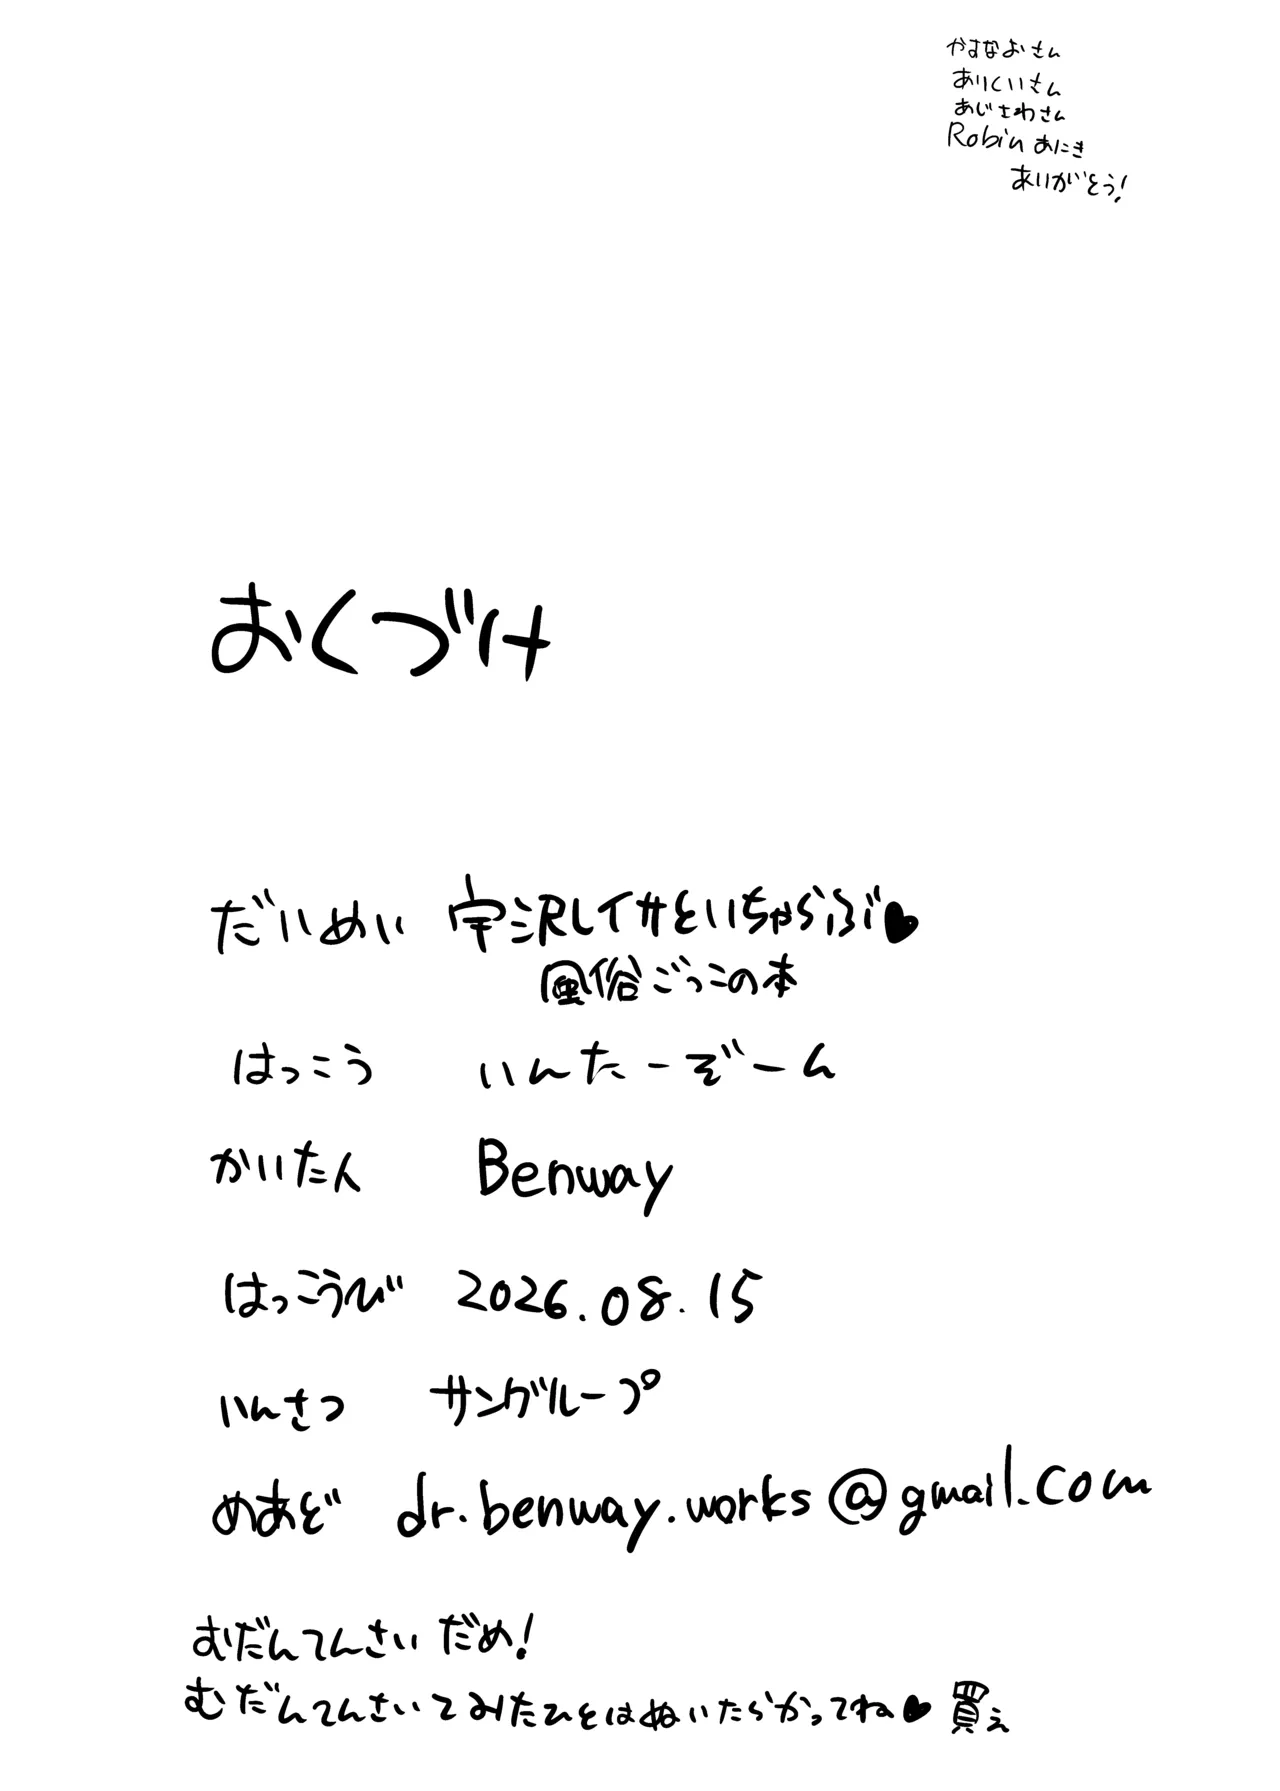 かすなおさん
ありくいさん
あじさわさん
Robin あにき
ありがとう!
おくづけ
だいめい 宇沢レイサといちゃらぶ♥
風俗ごっこの本
はっこう いんたーぞーん
かいたん Benway
はっこうび 2026.08.15
いんさつ サングループ
めあど dr.benway.works@gmail.com
むだんてんさい だめ!
むだんてんさいでみたひとはぬいたらかってね♥ 買え